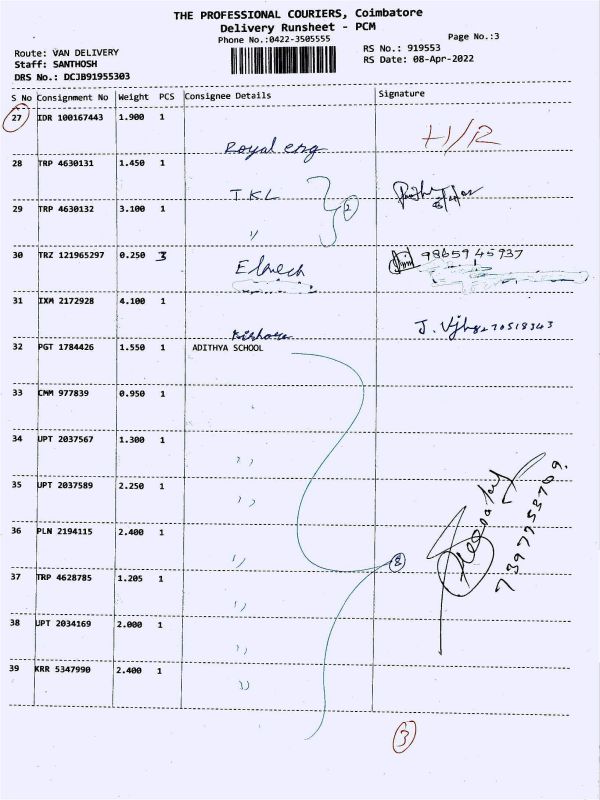 THE PROFESSIONAL COURIERS, Coimbatore
Delivery Runsheet - PCM
Phone No.:0422-3505555
Page No.:3
Route: VAN DELIVERY
Staff: SANTHOSH
DRS No.: DCJB91955303
RS No.: 919553
RS Date: 08-Apr-2022
S No Consignment No Weight PCS Consignee Details Signature
27 IDR 100167443 1.900 1
Royal eng
28 TRP 4630131 1.450 1
T.K.L
29 TRP 4630132 3.100 1
2
"
30 TRZ 121965297 0.250 3
9865945937
31 IXM 2172928 4.100 1
Kishore
J.
32 PGT 1784426 1.550 1 ADITHYA SCHOOL
33 CMM 977839 0.950 1
34 UPT 2037567 1.300 1
"
35 UPT 2037589 2.250 1
"
36 PLN 2194115 2.400 1
"
8
37 TRP 4628785 1.205 1
"
38 UPT 2034169 2.000 1
"
39 KRR 5347990 2.400 1
"
3